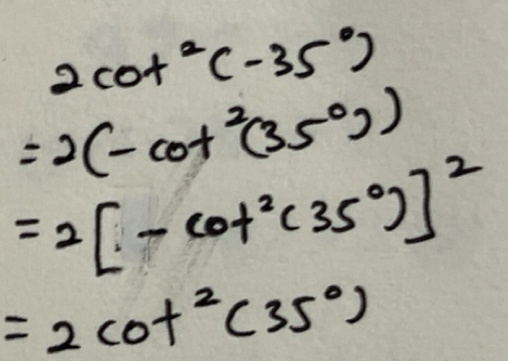 2cot²(-35°)
=2(-cot²(35°))
=2[-cot²(35°)]²
=2cot²(35°)